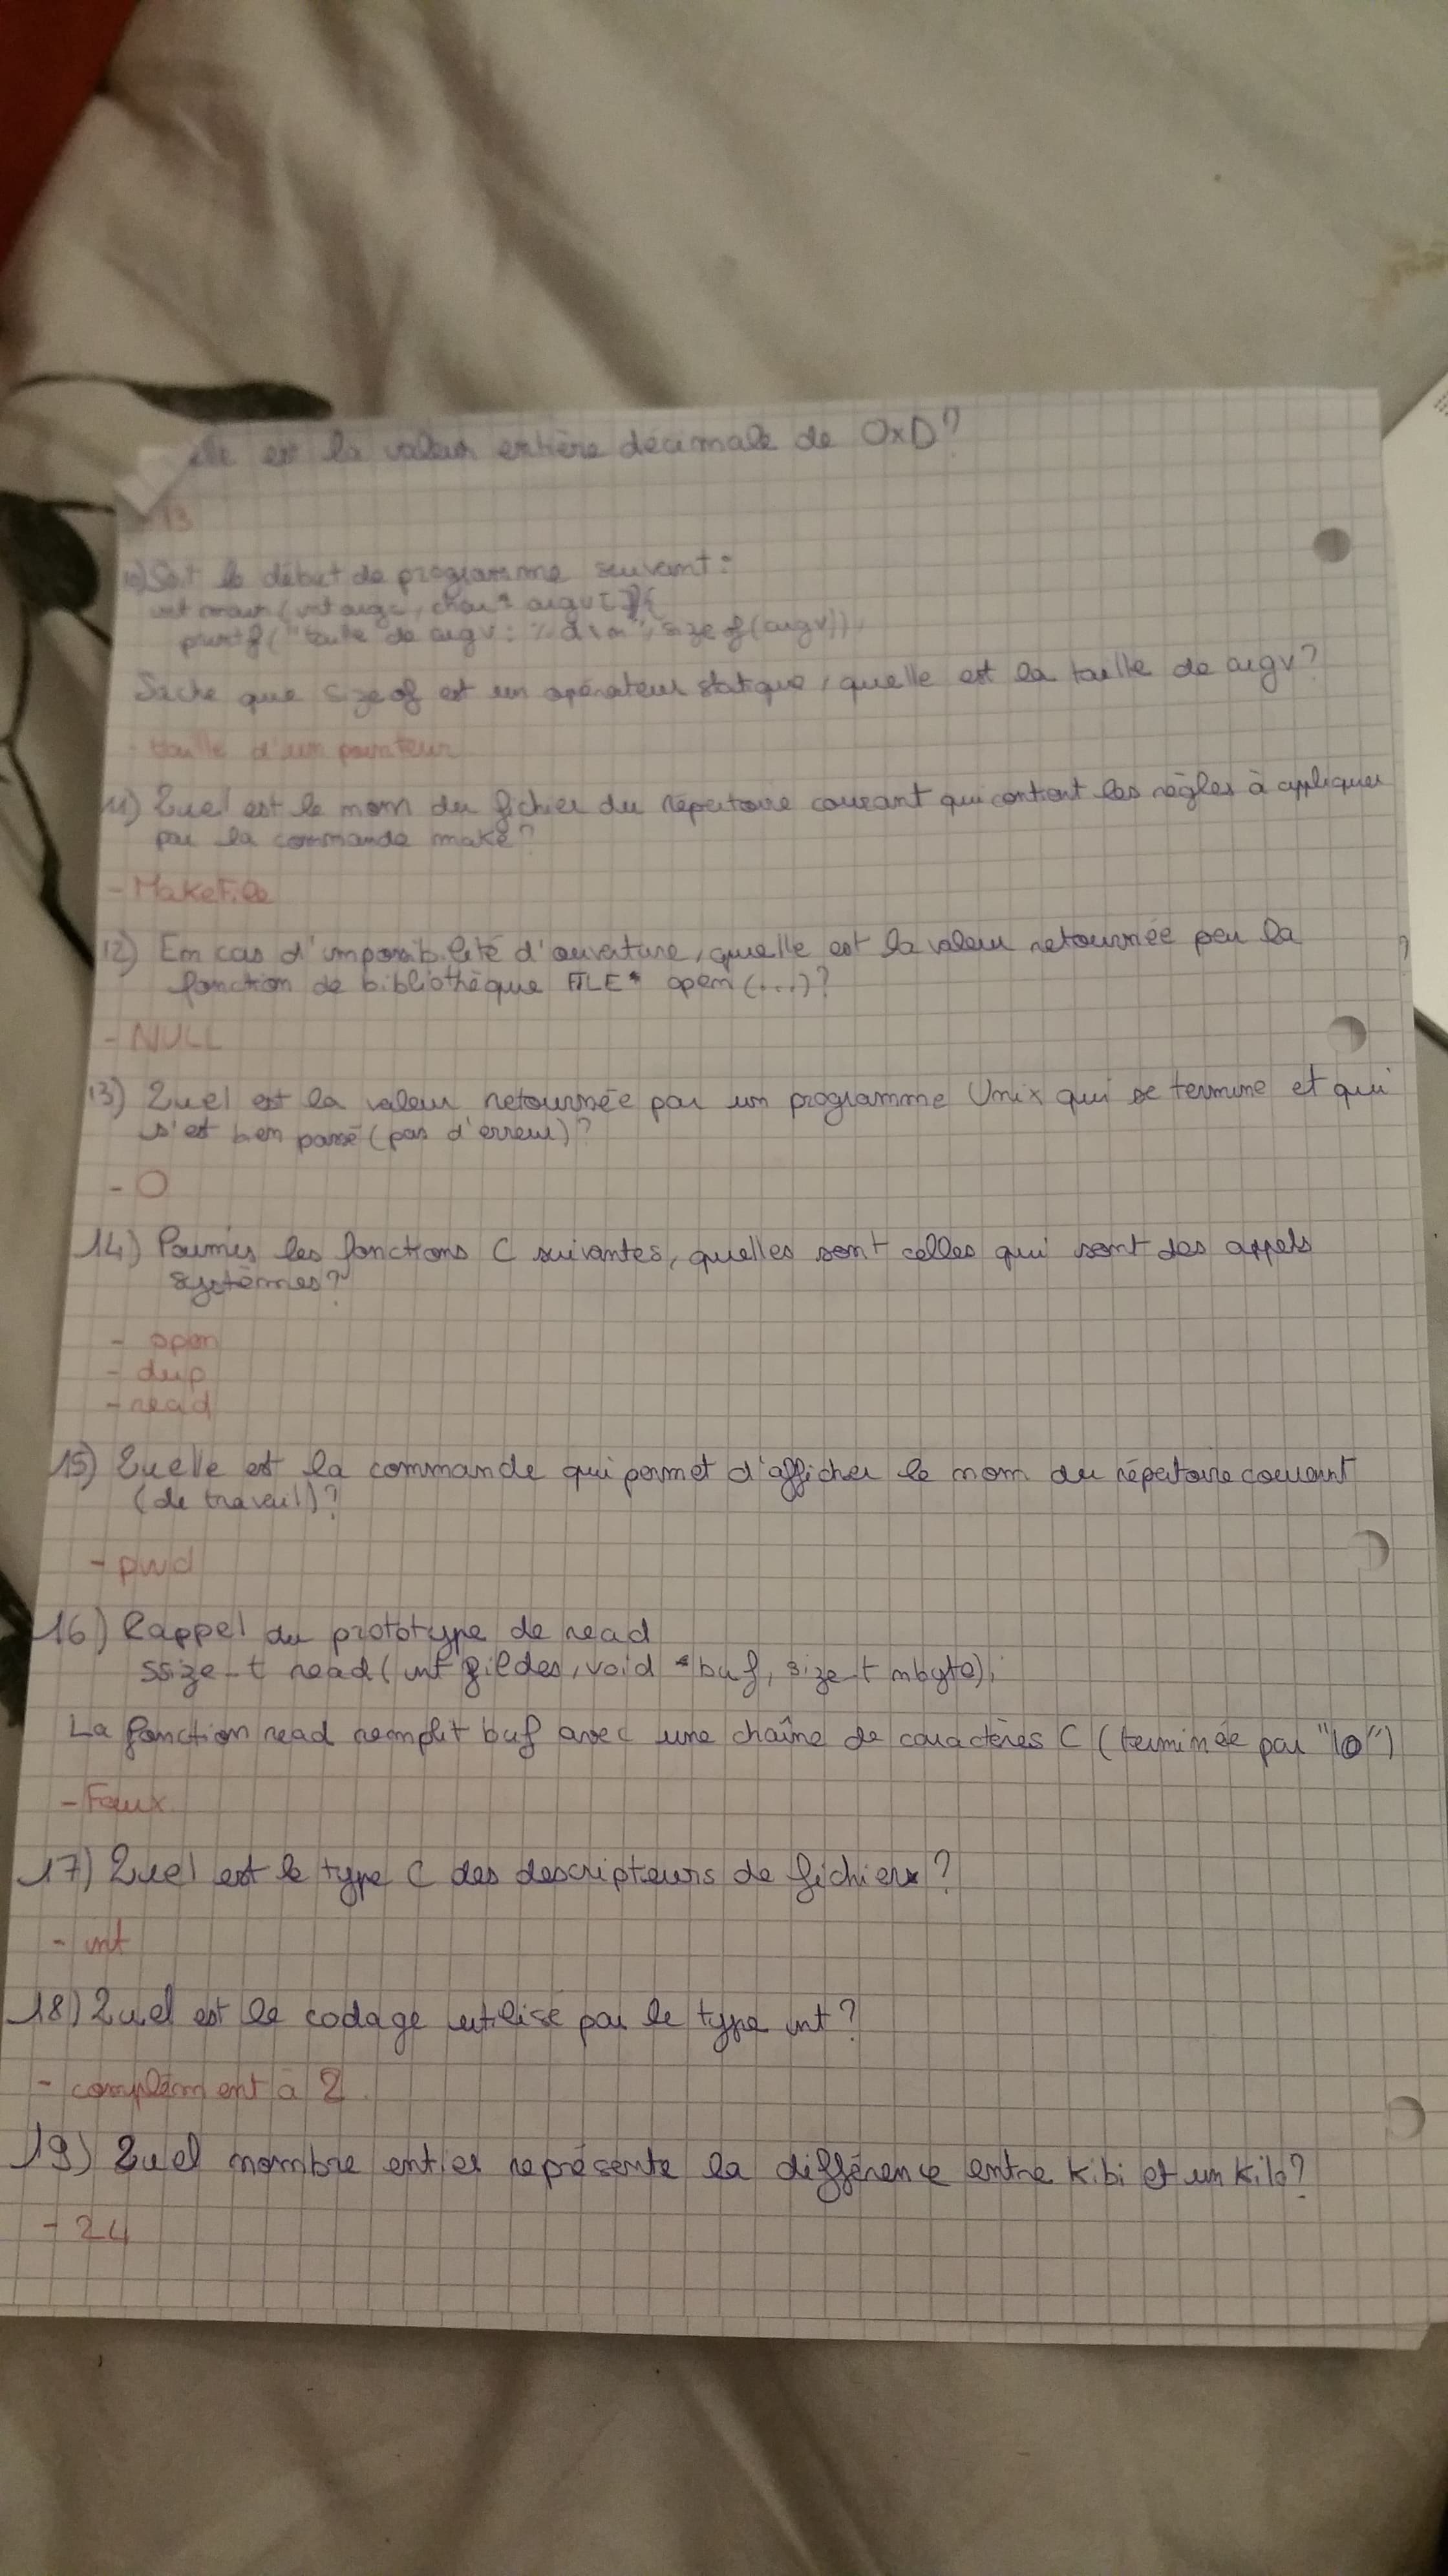 elle est la valeur entière décimale de 0xD?
- 13
10) Soit le début de programme suivant:
int main (int argc, char* argv[]){
printf("taille de argv: %d\n", sizeof(argv));
Sache que sizeof est un opérateur statique, quelle est la taille de argv?
- taille d'un pointeur
11) Quel est le nom du fichier du répertoire courant qui contient les règles à appliquer
par la commande make?
- MakeFile
12) En cas d'impossibilité d'ouverture, quelle est la valeur retournée par la
fonction de bibliothèque FILE* open(...)?
- NULL
13) Quel est la valeur retournée par un programme Unix qui se termine et qui
s'est bien passé (pas d'erreur)?
- 0
14) Parmis les fonctions C suivantes, quelles sont celles qui sont des appels
systèmes?
- open
- dup
- read
15) Quelle est la commande qui permet d'afficher le nom du répertoire courant
(de travail)?
- pwd
16) Rappel du prototype de read
ssize_t read(int fildes, void *buf, size_t nbyte);
La fonction read remplit buf avec une chaîne de caractères C (terminée par "\0")
- Faux
17) Quel est le type C des descripteurs de fichier?
- int
18) Quel est le codage utilisé par le type int?
- complément à 2.
19) Quel nombre entier représente la différence entre kibi et un kilo?
- 24